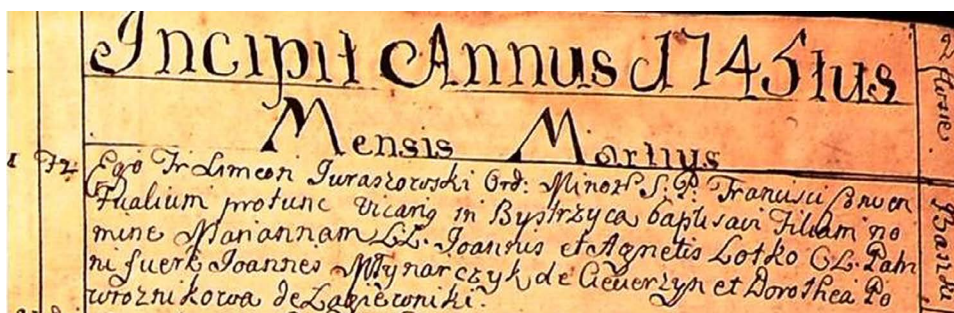 Incipit Annus 1745tus
Mensis Martius
72 Ego Fr Simeon Juraszowski Ord: Minor S. P. Francisci Conven
Tualium protunc Vicarig in Bystrzyca baptisavi Filiam no
mine Mariannam LL. Joannis et Agnetis Lotko CL. Patri
ni fuert Joannes Młynarczyk de Ciecierzyn et Dorothea Po
wroznikowa de Łagiewniki.